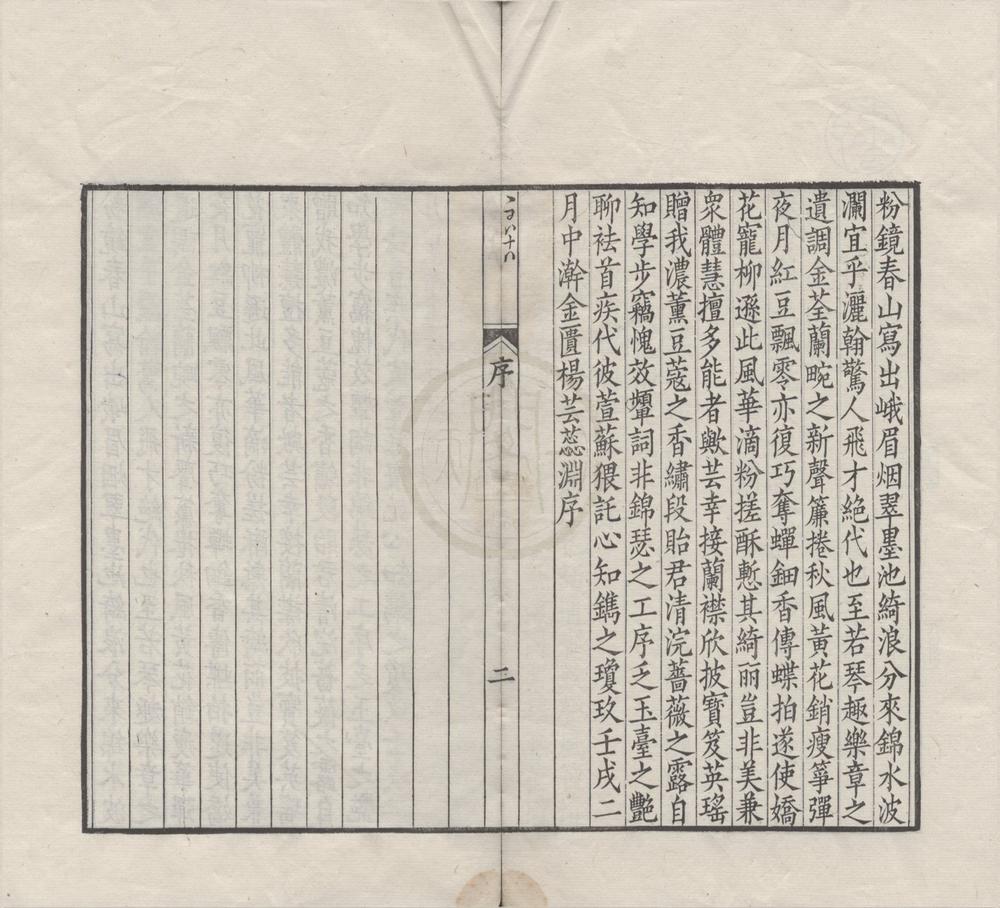 粉鏡春山寫出峨眉烟翠墨池綺浪分來錦水波
瀾宜乎灑翰驚人飛才絕代也至若琴趣樂章之
遺調金荃蘭畹之新聲簾捲秋風黃花銷瘦箏彈
夜月紅豆飄零亦復巧奪蟬鈿香傳蝶拍遂使嬌
花寵柳遜此風華滴粉搓酥慙其綺丽豈非美兼
衆體慧擅多能者歟芸幸接蘭襟欣披寶笈英瑤
贈我濃薰豆蔻之香繡段貽君清浣薔薇之露自
知學步竊愧效顰詞非錦瑟之工序乏玉臺之艷
聊袪首疾代彼萱蘇猥託心知鐫之瓊玖壬戌二
月中澣金匱楊芸蕊淵序
序
二